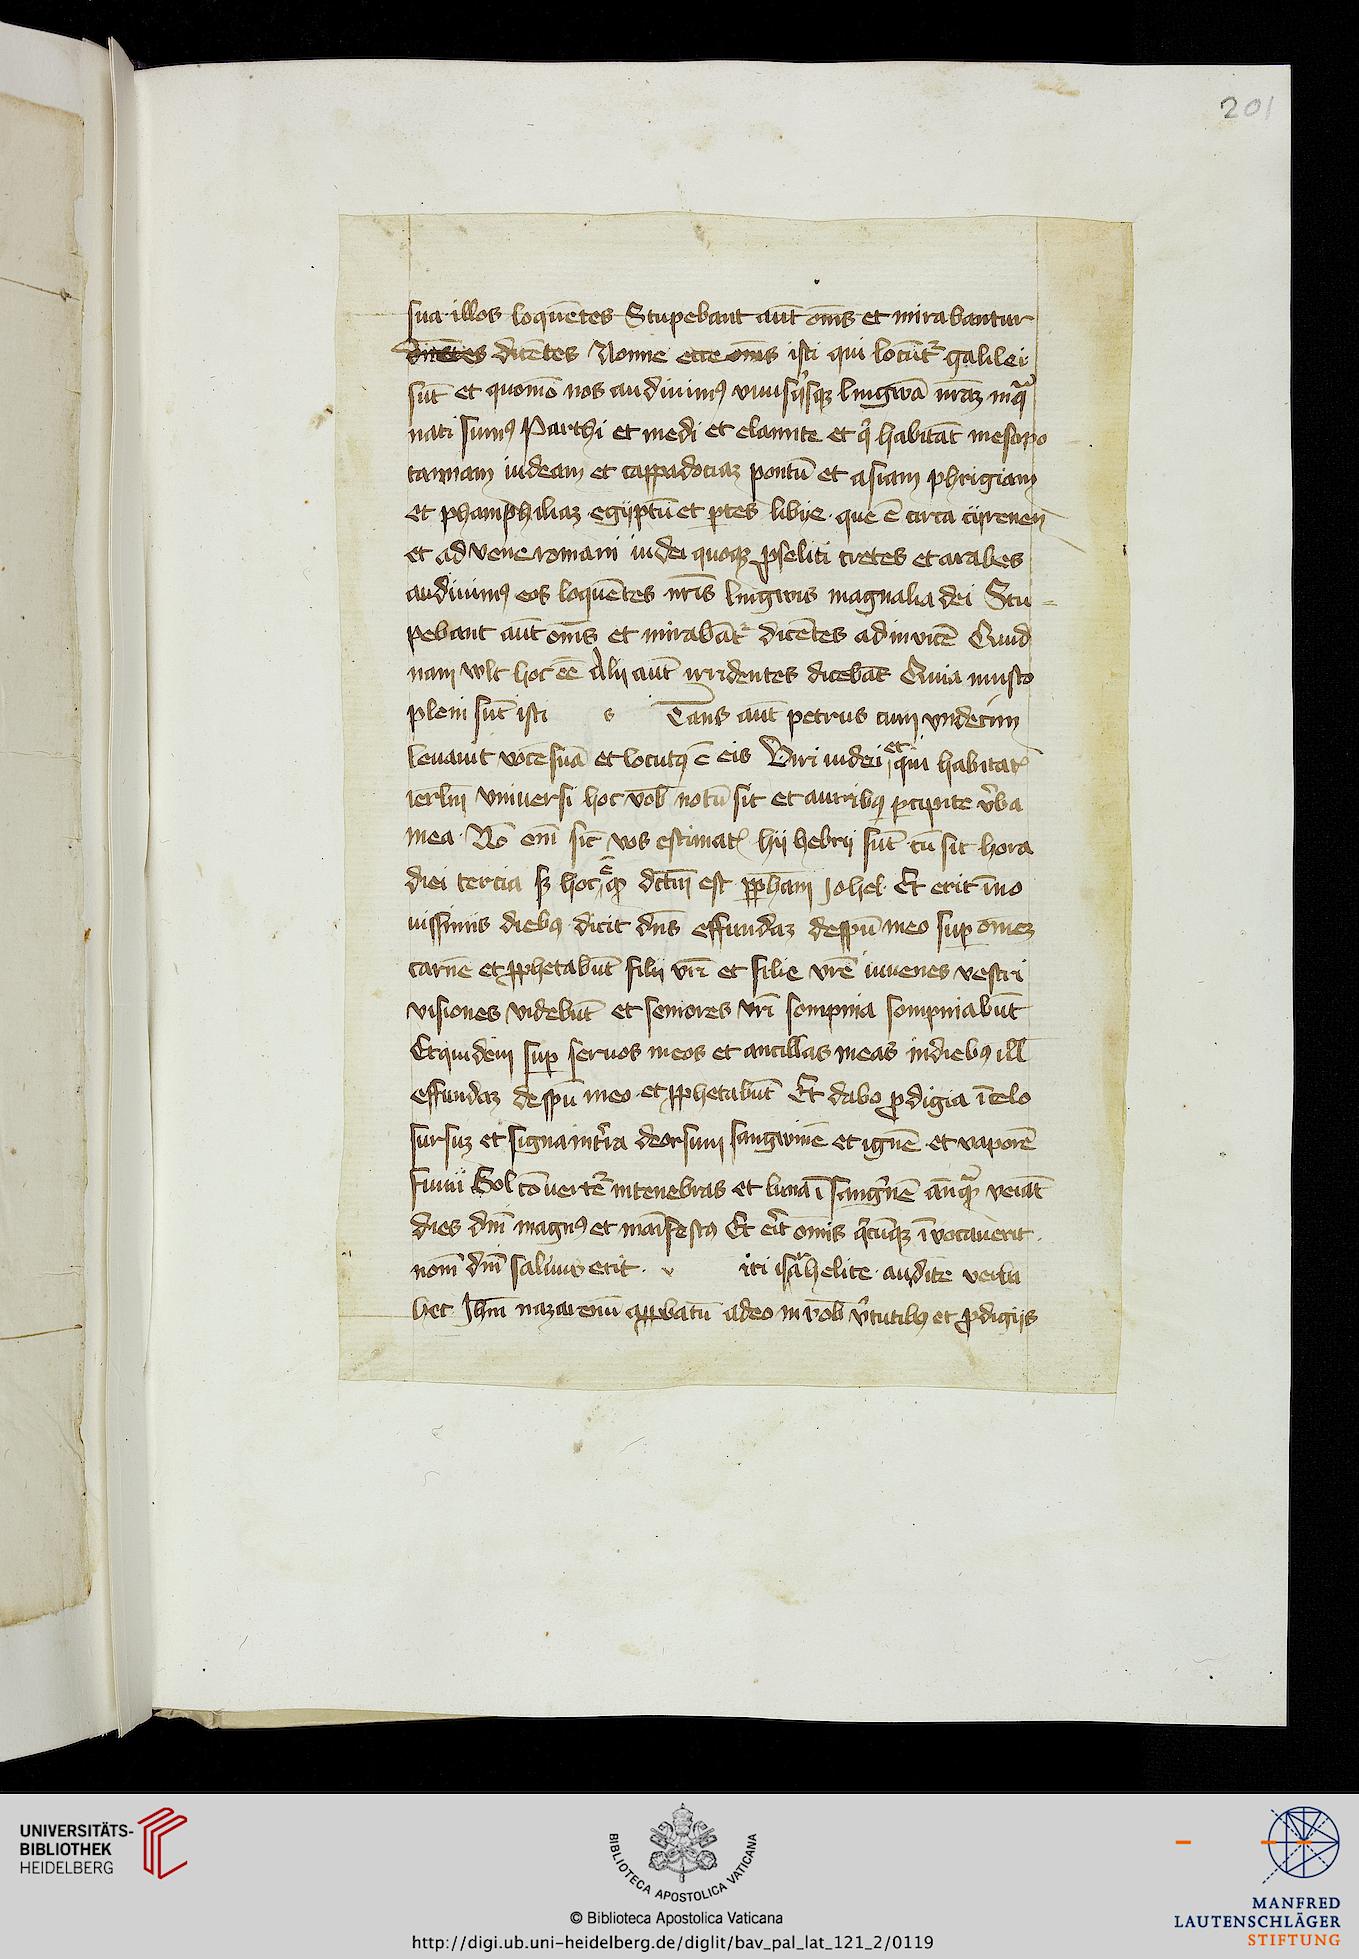 201
sua illos loquētes Stupebant aūt om̄s et mirabantur
dicētes Nonne ecce om̄s isti qui locūt᷑ galilei
sūt et quomō nos audiuimꝰ vnusq̉sqꝫ lingwā nr̄aꝫ in q̄
nati sumꝰ Parthi et medi et elamite et q̉ habitāt mesopo
tamiam iudeam et cappadociaꝫ pontū et asiam phrigiam
et phamphiliaꝫ egiiptū et ꝑtes libije que ē circa cijrenen
et advene romani iudei quoqꝫ ꝓseliti cretes et arabes
audiuimꝰ eos loquētes nr̄is lingwis magnalia dei Stu-
pebant aūt om̄s et mirabāt᷑ dicētes ad invicē Quid
nam wlt hoc ēē Alij aūt irridentes dicebāt Quia musto
pleni sūt isti s Tans aūt petrus cum vndecim
levauit vocē suā et locutꝰ ē eis Viri iudei et qui habitat᷑
ierlm̄ vniuersi hoc vob̄ notū sit et auribꝰ ꝑcipite v̉ba
mea Nō em̄ sic̄ vos estimat᷑ hij hebrij sūt cū sit hora
diei tercia sꝫ hoc ē qd̄ dictū est ꝓpham̄ Johel Et erit ī no
uissimis diebꝰ dicit dn̄s effundaꝫ de spū meo suꝑ om̄eꝫ
carnē et ꝓphetabūt filij vr̄i et filie vr̄e iuuenes vestri
visiones videbūt et seniores vr̄i sompnia sompniabūt
Et quidem suꝑ seruos meos et ancillas meas in diebꝰ ill̄
effundaꝫ de spū meo et ꝓphetabūt Et dabo ꝓdigia ī celo
sursuꝫ et signa in t̉ra deorsum sangwinē et ignē et vaporē
fumi Sol cōvertet᷑ in tenebras et luna ī sangīnē anq̄ꝫ veiāt
dies dn̄i magnꝰ et manīfestꝰ Et er̄it om̄is q̉cūqꝫ īvocauerit
nom̄ dn̄i saluus erit v iri isrāhelite audite verba
hec Ihm̄ nazarenū apꝓbatū a deo in vob̄ v̉tutibꝰ et ꝓdigijs
UNIVERSITÄTS-
BIBLIOTHEK
HEIDELBERG
BIBLIOTECA APOSTOLICA VATICANA
© Biblioteca Apostolica Vaticana
http://digi.ub.uni-heidelberg.de/diglit/bav_pal_lat_121_2/0119
MANFRED
LAUTENSCHLÄGER
STIFTUNG